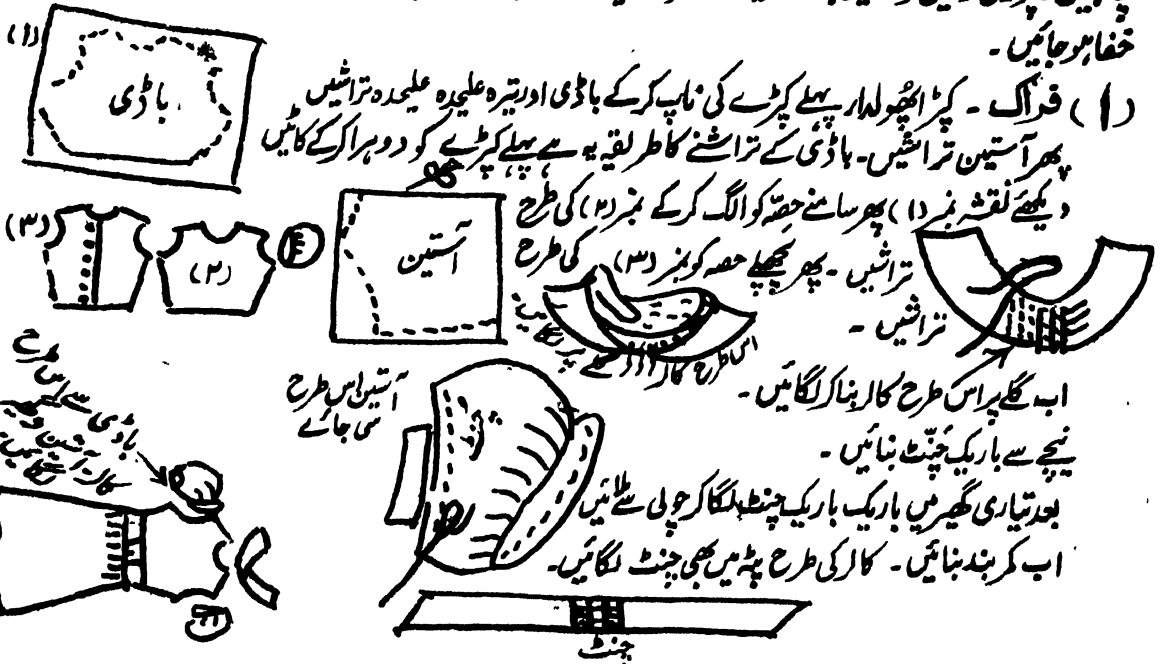 خفا ہو جائیں ۔
(۱) فراک ۔ کپڑا پھولدار پہلے کپڑے کی ناپ کر کے باڈی اور تیرہ علیحدہ علیحدہ تراشیں
پھر آستین تراشیں۔ باڈی کے تراشنے کا طریقہ یہ ہے پہلے کپڑے کو دوہرا کر کے کاٹیں
دیکھئے نقشہ نمبر (۱) پھر سامنے حصّہ کو الگ کر کے نمبر (۲) کی طرح
تراشیں ۔ پھر پچھلے حصہ کو نمبر (۳) کی طرح
تراشیں ۔
اب گلے پر اس طرح کالر بنا کر لگائیں ۔
نیچے سے باریک چُنّٹ بنائیں ۔
بعد تیاری گھیر میں باریک باریک چنٹ لگا کر چولی سے ٹائیں
اب کمر بند بنائیں ۔ کالر کی طرح پٹہ میں بھی چنٹ لگائیں۔
(۱)
باڈی
(۳)
(۲)
آستین
اس طرح کالر گلے پر لگائیں
آستین اس طرح
سی جائے
چنٹ
باڈی سے
اس طرح
چنٹ